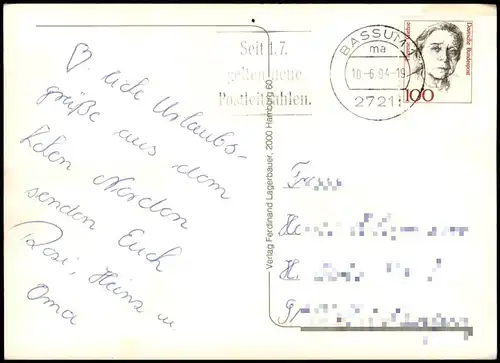 Seit 1.7.
gelten neue
Postleitzahlen.
BASSUM 1
ma
10.-6.94-19
2721
Deutsche Bundespost
100
♡liche Urlaubs-
grüße aus dem
hohen Norden
senden Euch
Rosi, Heinz u.
Oma
Verlag Ferdinand Lagerbauer, 2000 Hamburg 60